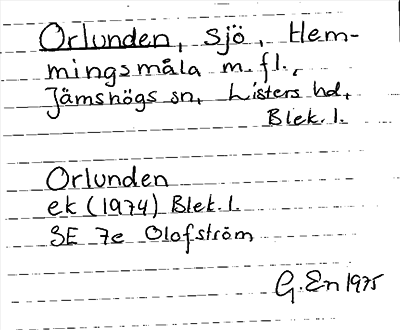 Orlunden, sjö, Hem-
mingsmåla m. fl.,
Jämshögs sn, Listers hd,
Blek. l.
Orlunden
ek (1974) Blek. l.
SE 7e Olofström
G. En 1975